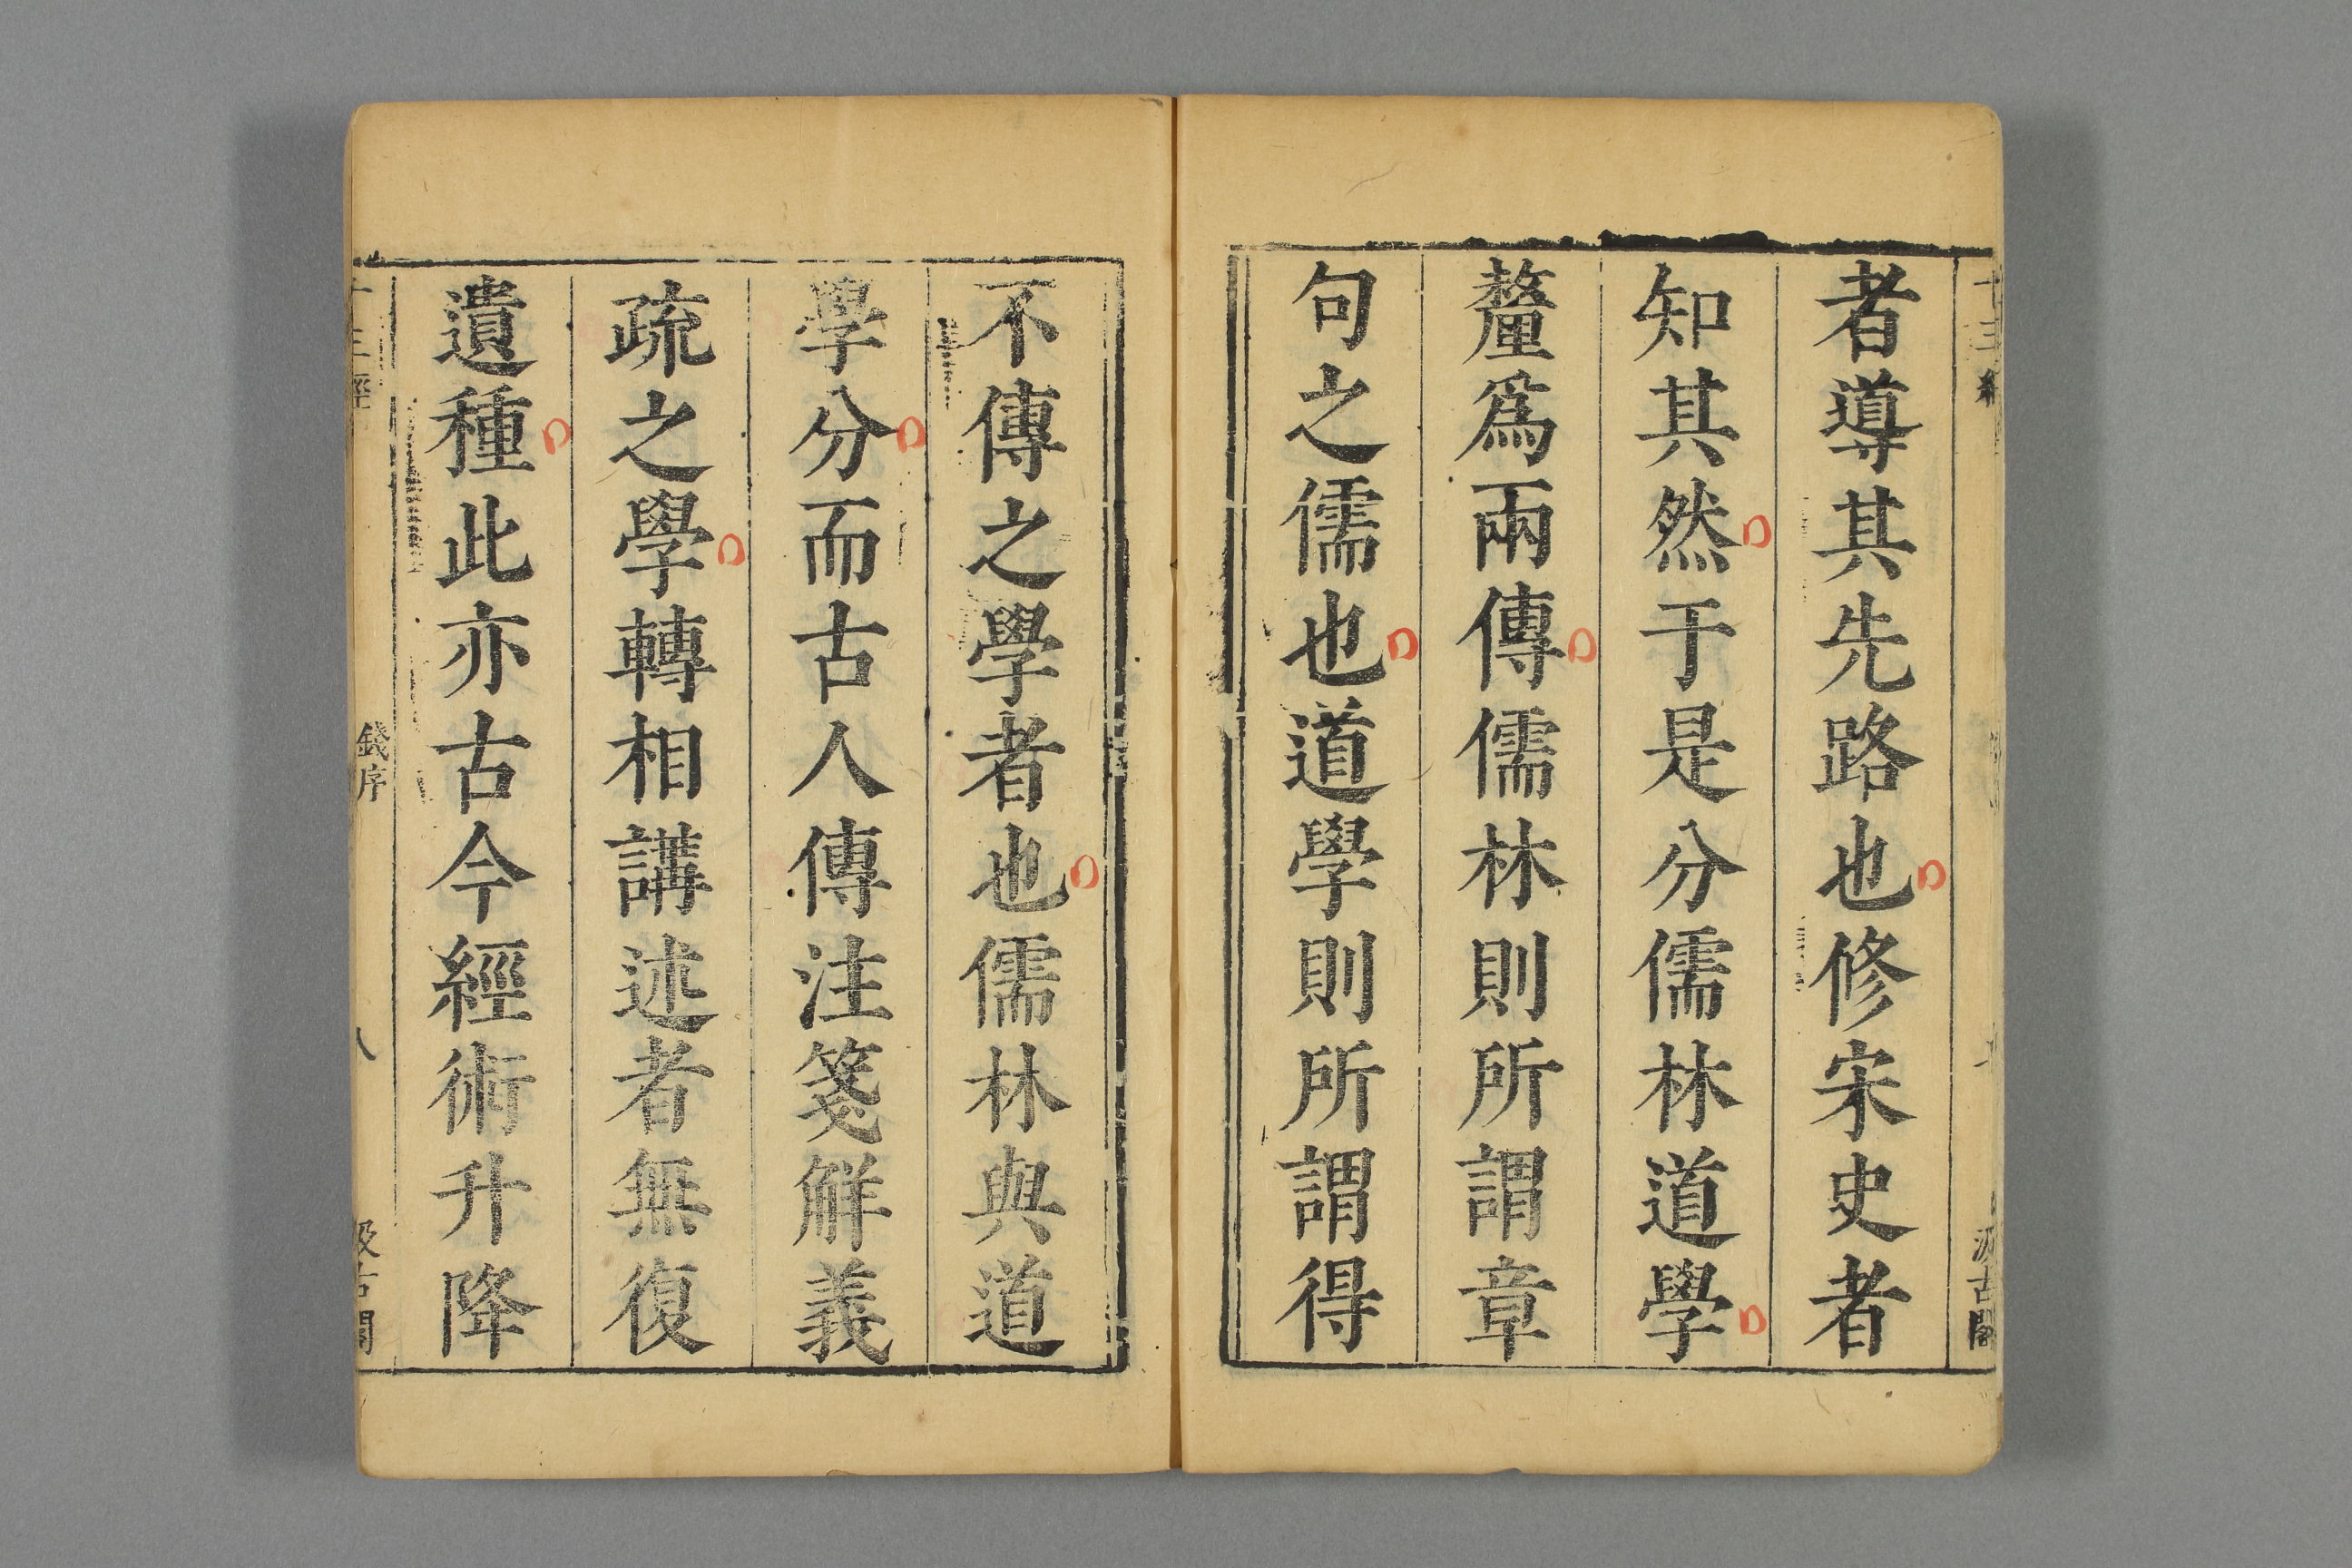 者導其先路也修宋史者
知其然于是分儒林道學
釐爲兩傳儒林則所謂章
句之儒也道學則所謂得
汲古閣
不傳之學者也儒林與道
學分而古人傳注箋解義
疏之學轉相講述者無復
遺種此亦古今經術升降
十三經
錢序
八
汲古閣